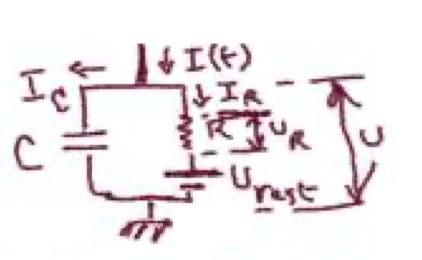 I(t)
I_C
I_R
C
R
U_R
U
U_rest